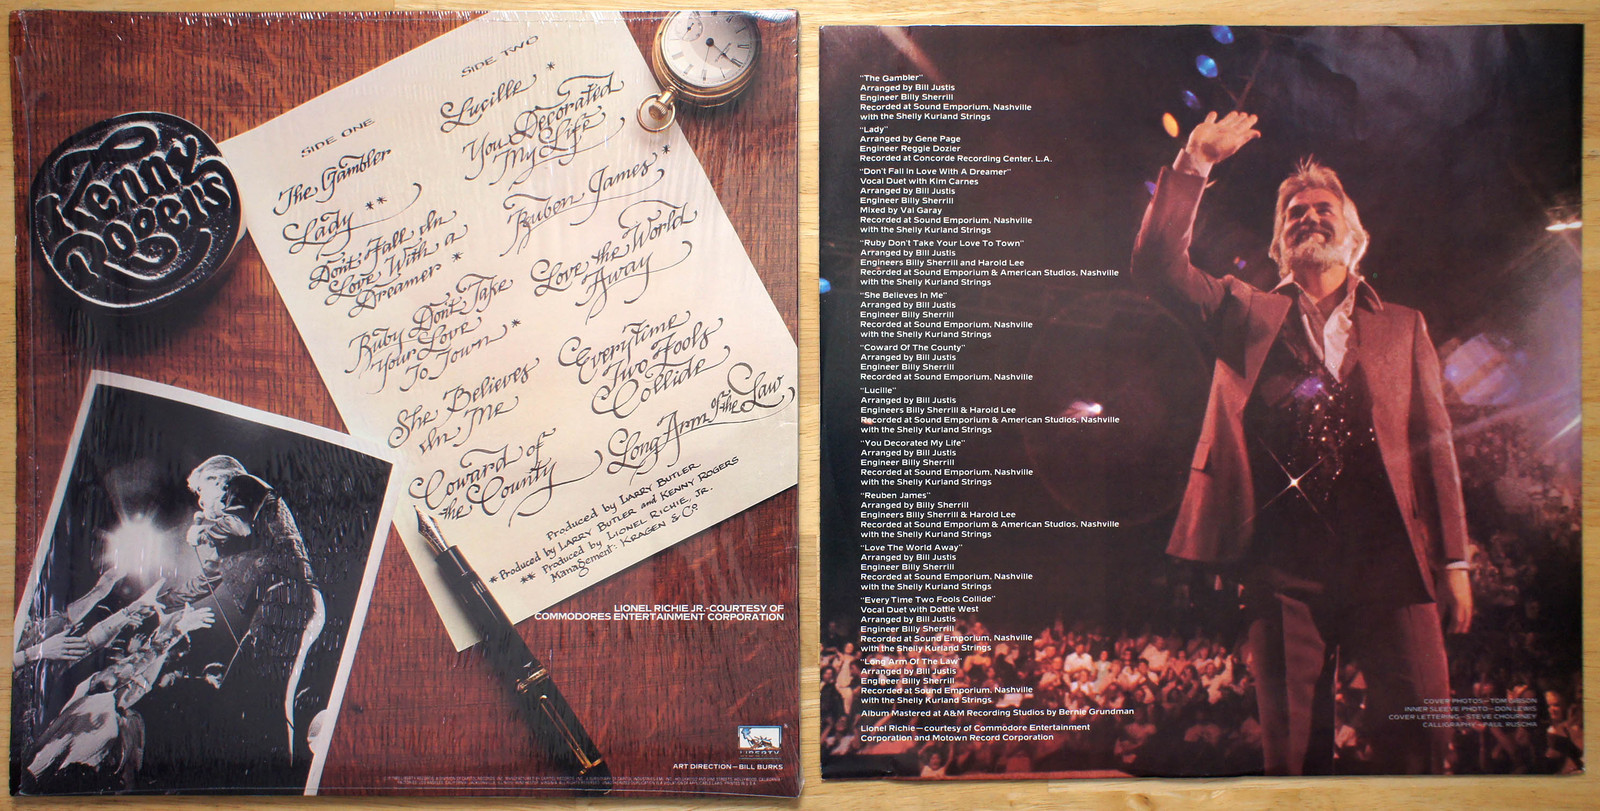 Kenny
Rogers
SIDE ONE
The Gambler
Lady **
Don't Fall In
Love With a
Dreamer *
Ruby Don't Take
Your Love
To Town *
She Believes
In Me
Coward of
the County
SIDE TWO
Lucille *
You Decorated
My Life
Ruben James *
Love the World
Away
Everytime
Two Fools
Collide
Long Arm of the Law
Produced by LARRY BUTLER
* Produced by LARRY BUTLER and KENNY ROGERS
** Produced by LIONEL RICHIE, JR.
Management: KRAGEN & Co
LIONEL RICHIE JR.-COURTESY OF
COMMODORES ENTERTAINMENT CORPORATION
LIBERTY
ART DIRECTION—BILL BURKS
"The Gambler"
Arranged by Bill Justis
Engineer Billy Sherrill
Recorded at Sound Emporium, Nashville
with the Shelly Kurland Strings
"Lady"
Arranged by Gene Page
Engineer Reggie Dozier
Recorded at Concorde Recording Center, L.A.
"Don't Fall In Love With A Dreamer"
Vocal Duet with Kim Carnes
Arranged by Bill Justis
Engineer Billy Sherrill
Mixed by Val Garay
Recorded at Sound Emporium, Nashville
with the Shelly Kurland Strings
"Ruby Don't Take Your Love To Town"
Arranged by Bill Justis
Engineers Billy Sherrill and Harold Lee
Recorded at Sound Emporium & American Studios, Nashville
with the Shelly Kurland Strings
"She Believes In Me"
Arranged by Bill Justis
Engineer Billy Sherrill
Recorded at Sound Emporium, Nashville
with the Shelly Kurland Strings
"Coward Of The County"
Arranged by Bill Justis
Engineer Billy Sherrill
Recorded at Sound Emporium, Nashville
"Lucille"
Arranged by Bill Justis
Engineers Billy Sherrill & Harold Lee
Recorded at Sound Emporium & American Studios, Nashville
with the Shelly Kurland Strings
"You Decorated My Life"
Arranged by Bill Justis
Engineer Billy Sherrill
Recorded at Sound Emporium, Nashville
with the Shelly Kurland Strings
"Reuben James"
Arranged by Billy Sherrill
Engineers Billy Sherrill & Harold Lee
Recorded at Sound Emporium & American Studios, Nashville
with the Shelly Kurland Strings
"Love The World Away"
Arranged by Bill Justis
Engineer Billy Sherrill
Recorded at Sound Emporium, Nashville
with the Shelly Kurland Strings
"Every Time Two Fools Collide"
Vocal Duet with Dottie West
Arranged by Bill Justis
Engineer Billy Sherrill
Recorded at Sound Emporium, Nashville
with the Shelly Kurland Strings
"Long Arm Of The Law"
Arranged by Bill Justis
Engineer Billy Sherrill
Recorded at Sound Emporium, Nashville
with the Shelly Kurland Strings
Album Mastered at A&M Recording Studios by Bernie Grundman
Lionel Richie—courtesy of Commodore Entertainment
Corporation and Motown Record Corporation
COVER PHOTOS—TOM GIBSON
INNER SLEEVE PHOTO—DON LEWIS
COVER LETTERING—STEVE CHOURNEY
CALLIGRAPHY—PAUL RUSCHA